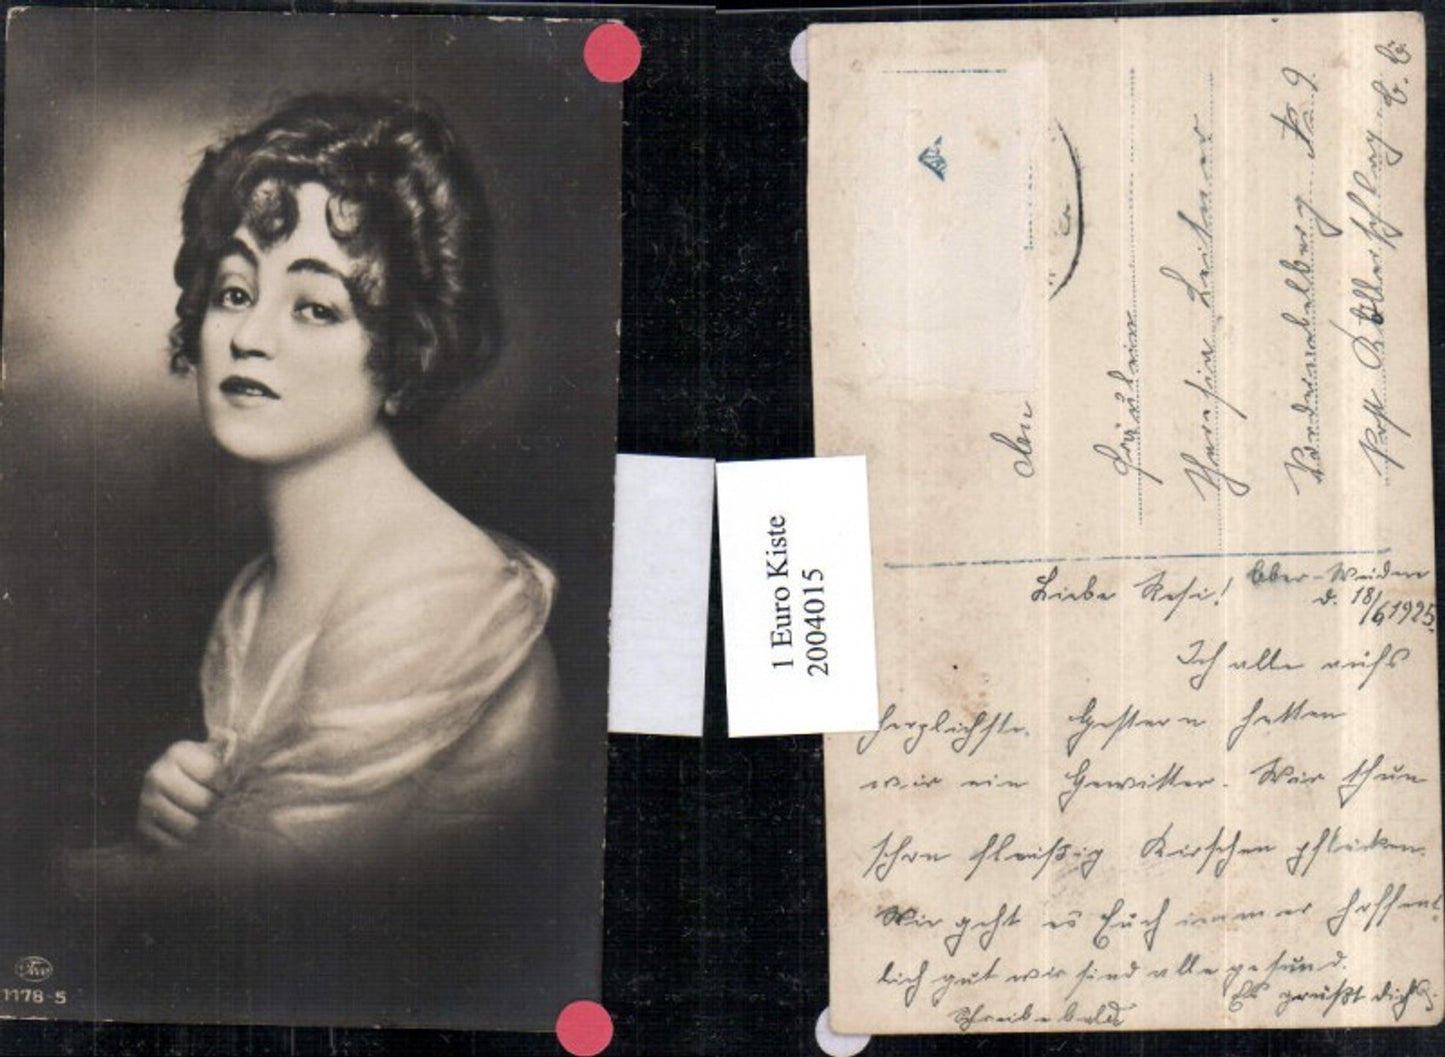 1178-5
1 Euro Kiste
2004015
An
Fräulein
Theresia Leitner
Vorderadelberg No 9
Post
Liebe Resi! Ober-Weiden
d. 18/6 1925
Ich alle aufs
herzlichste. Gestern hatten
wir ein Gewitter. Wir thun
schon fleißig Kirschen pflücken.
Wie geht es Euch immer hoffent
lich gut wir sind alle gesund.
Es grüßt dich
Schreibe bald